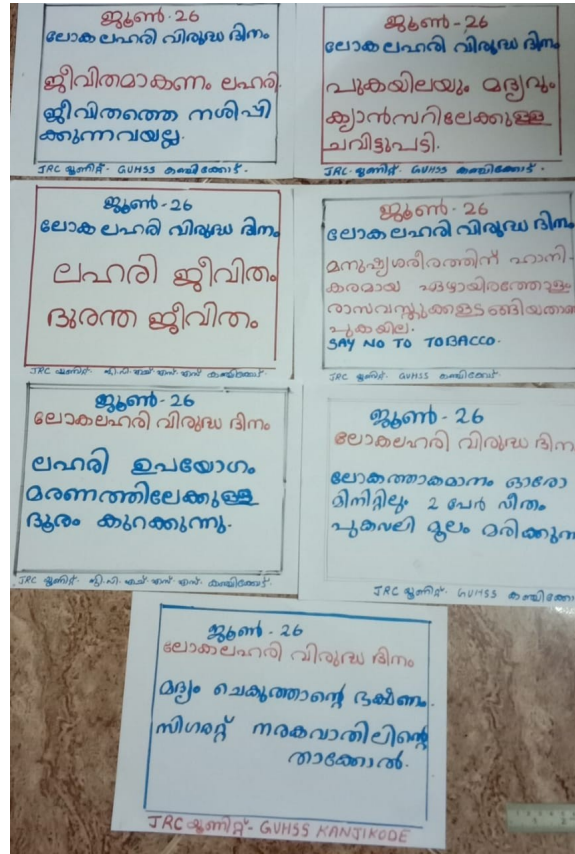 ജൂൺ-26
ലോകലഹരി വിരുദ്ധ ദിനം
ജീവിതമാകണം ലഹരി.
ജീവിതത്തെ നശിപ്പി
ക്കുന്നവയല്ല.
JRC യൂണിറ്റ്- GVHSS കഞ്ചിക്കോട്.
ജൂൺ-26
ലോകലഹരി വിരുദ്ധ ദിനം
പുകയിലയും മദ്യവും
ക്യാൻസറിലേക്കുള്ള
ചവിട്ടുപടി.
JRC യൂണിറ്റ്- GVHSS കഞ്ചിക്കോട്.
ജൂൺ-26
ലോകലഹരി വിരുദ്ധ ദിനം
ലഹരി ജീവിതം
ദുരന്ത ജീവിതം
JRC യൂണിറ്റ്- ജി.വി.എച്ച്.എസ്.എസ് കഞ്ചിക്കോട്.
ജൂൺ-26
ലോകലഹരി വിരുദ്ധ ദിനം
മനുഷ്യശരീരത്തിന് ഹാനി-
കരമായ ഏഴായിരത്തോളം
രാസവസ്തുക്കളടങ്ങിയതാണ്
പുകയില.
SAY NO TO TOBACCO.
JRC യൂണിറ്റ്- GVHSS കഞ്ചിക്കോട്
ജൂൺ-26
ലോകലഹരി വിരുദ്ധ ദിനം
ലഹരി ഉപയോഗം
മരണത്തിലേക്കുള്ള
ദൂരം കുറക്കുന്നു.
JRC യൂണിറ്റ്- ജി.വി.എച്ച്.എസ്.എസ്. കഞ്ചിക്കോട്.
ജൂൺ-26
ലോകലഹരി വിരുദ്ധ ദിന
ലോകത്താകമാനം ഓരോ
മിനിറ്റിലും 2 പേർ വീതം
പുകവലി മൂലം മരിക്കുന്ന
JRC യൂണിറ്റ്- GVHSS കഞ്ചിക്കോ
ജൂൺ-26
ലോകലഹരി വിരുദ്ധ ദിനം
മദ്യം ചെകുത്താന്റെ ഭക്ഷണം.
സിഗരറ്റ് നരകവാതിലിന്റെ
താക്കോൽ.
JRC യൂണിറ്റ്- GVHSS KANJIKODE